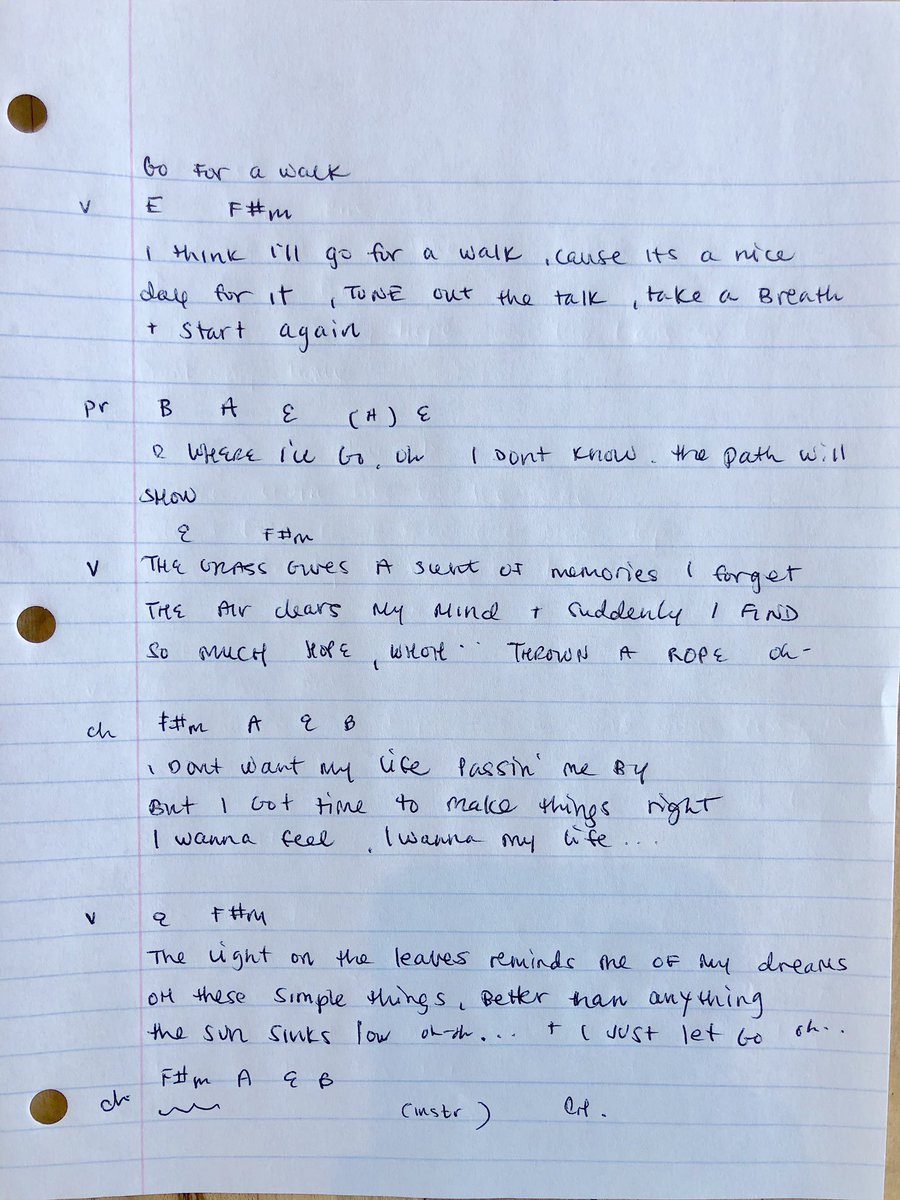 Go for a walk
V E F#m
I think i'll go for a walk, cause its a nice
day for it, TUNE out the talk, take a Breath
+ Start again
pr B A E (A) E
WHERE i'll Go, oh I Dont know. the path will
SHOW
E F#m
V THE GRASS GIVES A scent OF memories I forget
THE AIR clears MY MIND + Suddenly I FIND
So MUCH HOPE, WHOH.. THROWN A ROPE oh-
ch F#m A E B
I Dont want my life Passin' me BY
But I Got time to make things right
I wanna feel, I wanna my life...
V E F#m
The light on the leaves reminds me OF my dreams
OH these simple things, Better than anything
the sun sinks low oh-oh... + I JUST let Go oh..
F#m A E B
ch (instr) CH.